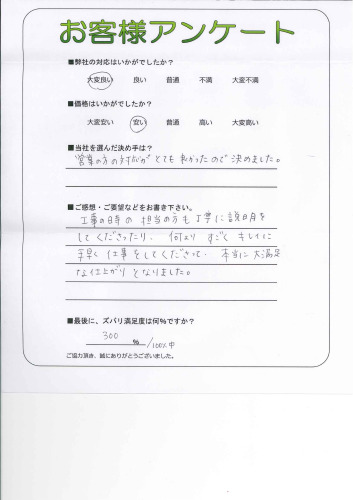 お客様アンケート
■弊社の対応はいかがでしたか？
大変良い 良い 普通 不満 大変不満
■価格はいかがでしたか？
大変安い 安い 普通 高い 大変高い
■当社を選んだ決め手は？
営業の方の対応がとても良かったので決めました。
■ご感想・ご要望などをお書き下さい。
工事の時の担当の方も丁寧に説明を
してくださったり、何より すごく キレイに
手早く仕事をしてくださって、本当に大満足
な仕上がりとなりました。
■最後に、ズバリ満足度は何%ですか？
300 % /100%中
ご協力頂き、誠にありがとうございました。